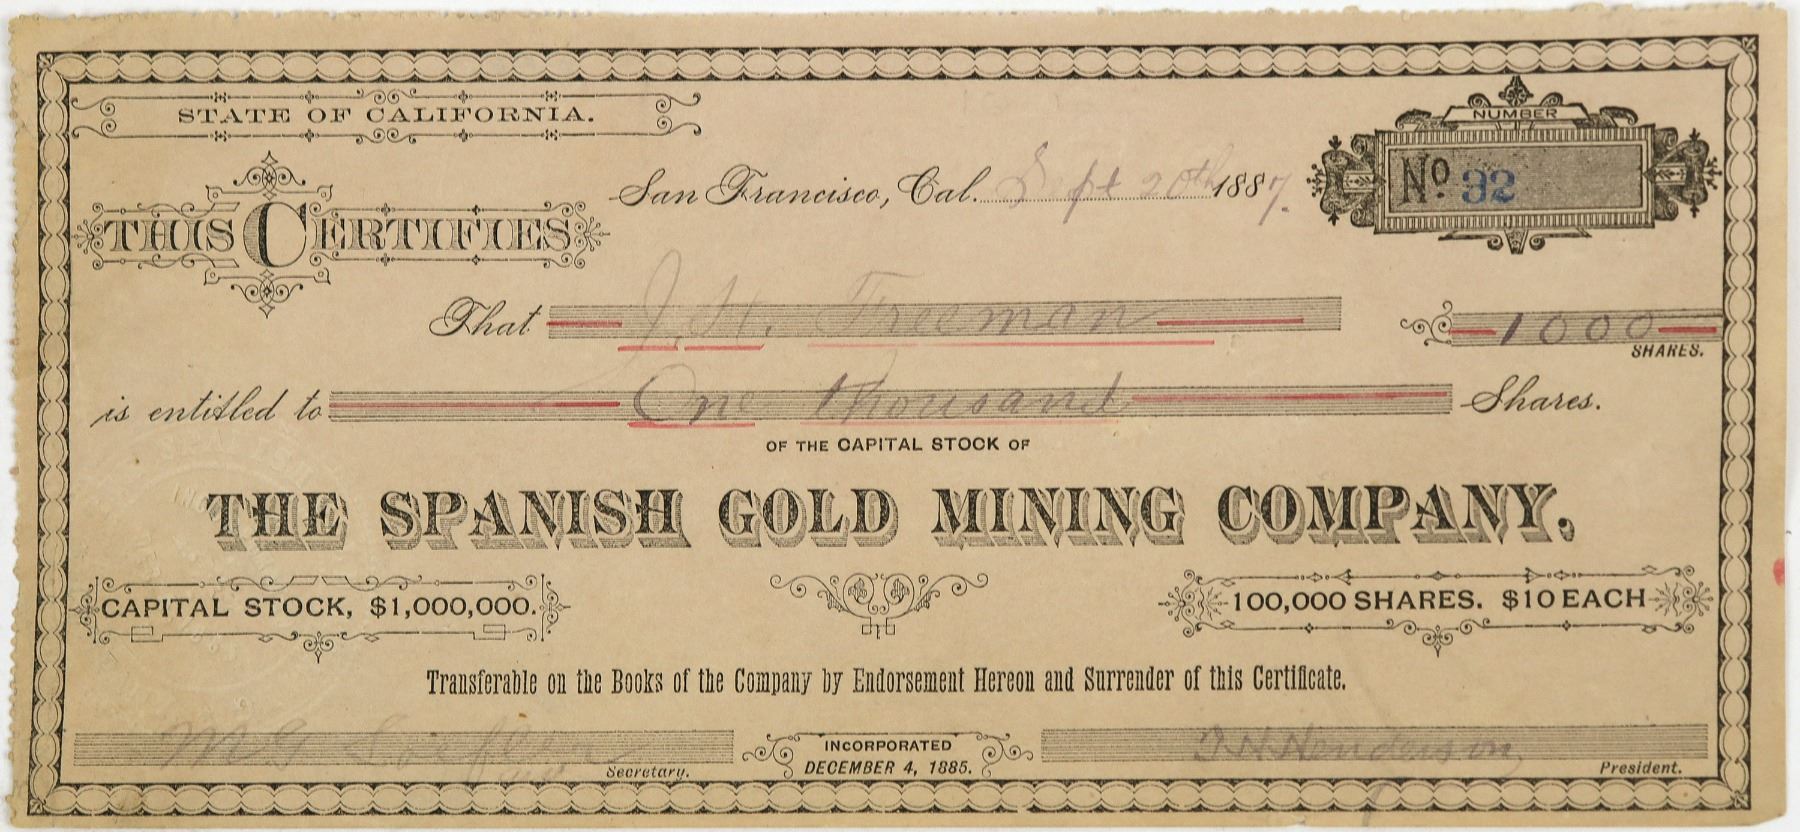 STATE OF CALIFORNIA.
NUMBER
No 32
San Francisco, Cal. Sept 20th 1887.
THIS CERTIFIES
That J. H. Freeman 1000
SHARES.
is entitled to One thousand Shares.
OF THE CAPITAL STOCK OF
THE SPANISH GOLD MINING COMPANY.
CAPITAL STOCK, $1,000,000.
100,000 SHARES. $10 EACH
Transferable on the Books of the Company by Endorsement Hereon and Surrender of this Certificate.
M G
Secretary.
INCORPORATED
DECEMBER 4, 1885.
Henderson
President.